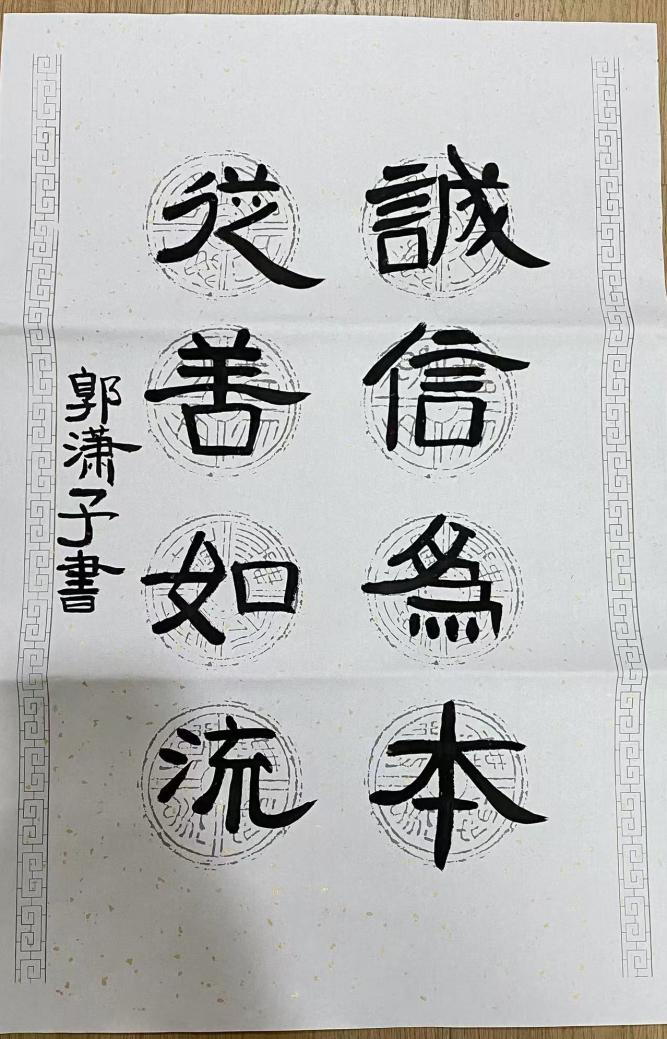 誠信為本
從善如流
郭瀟子書